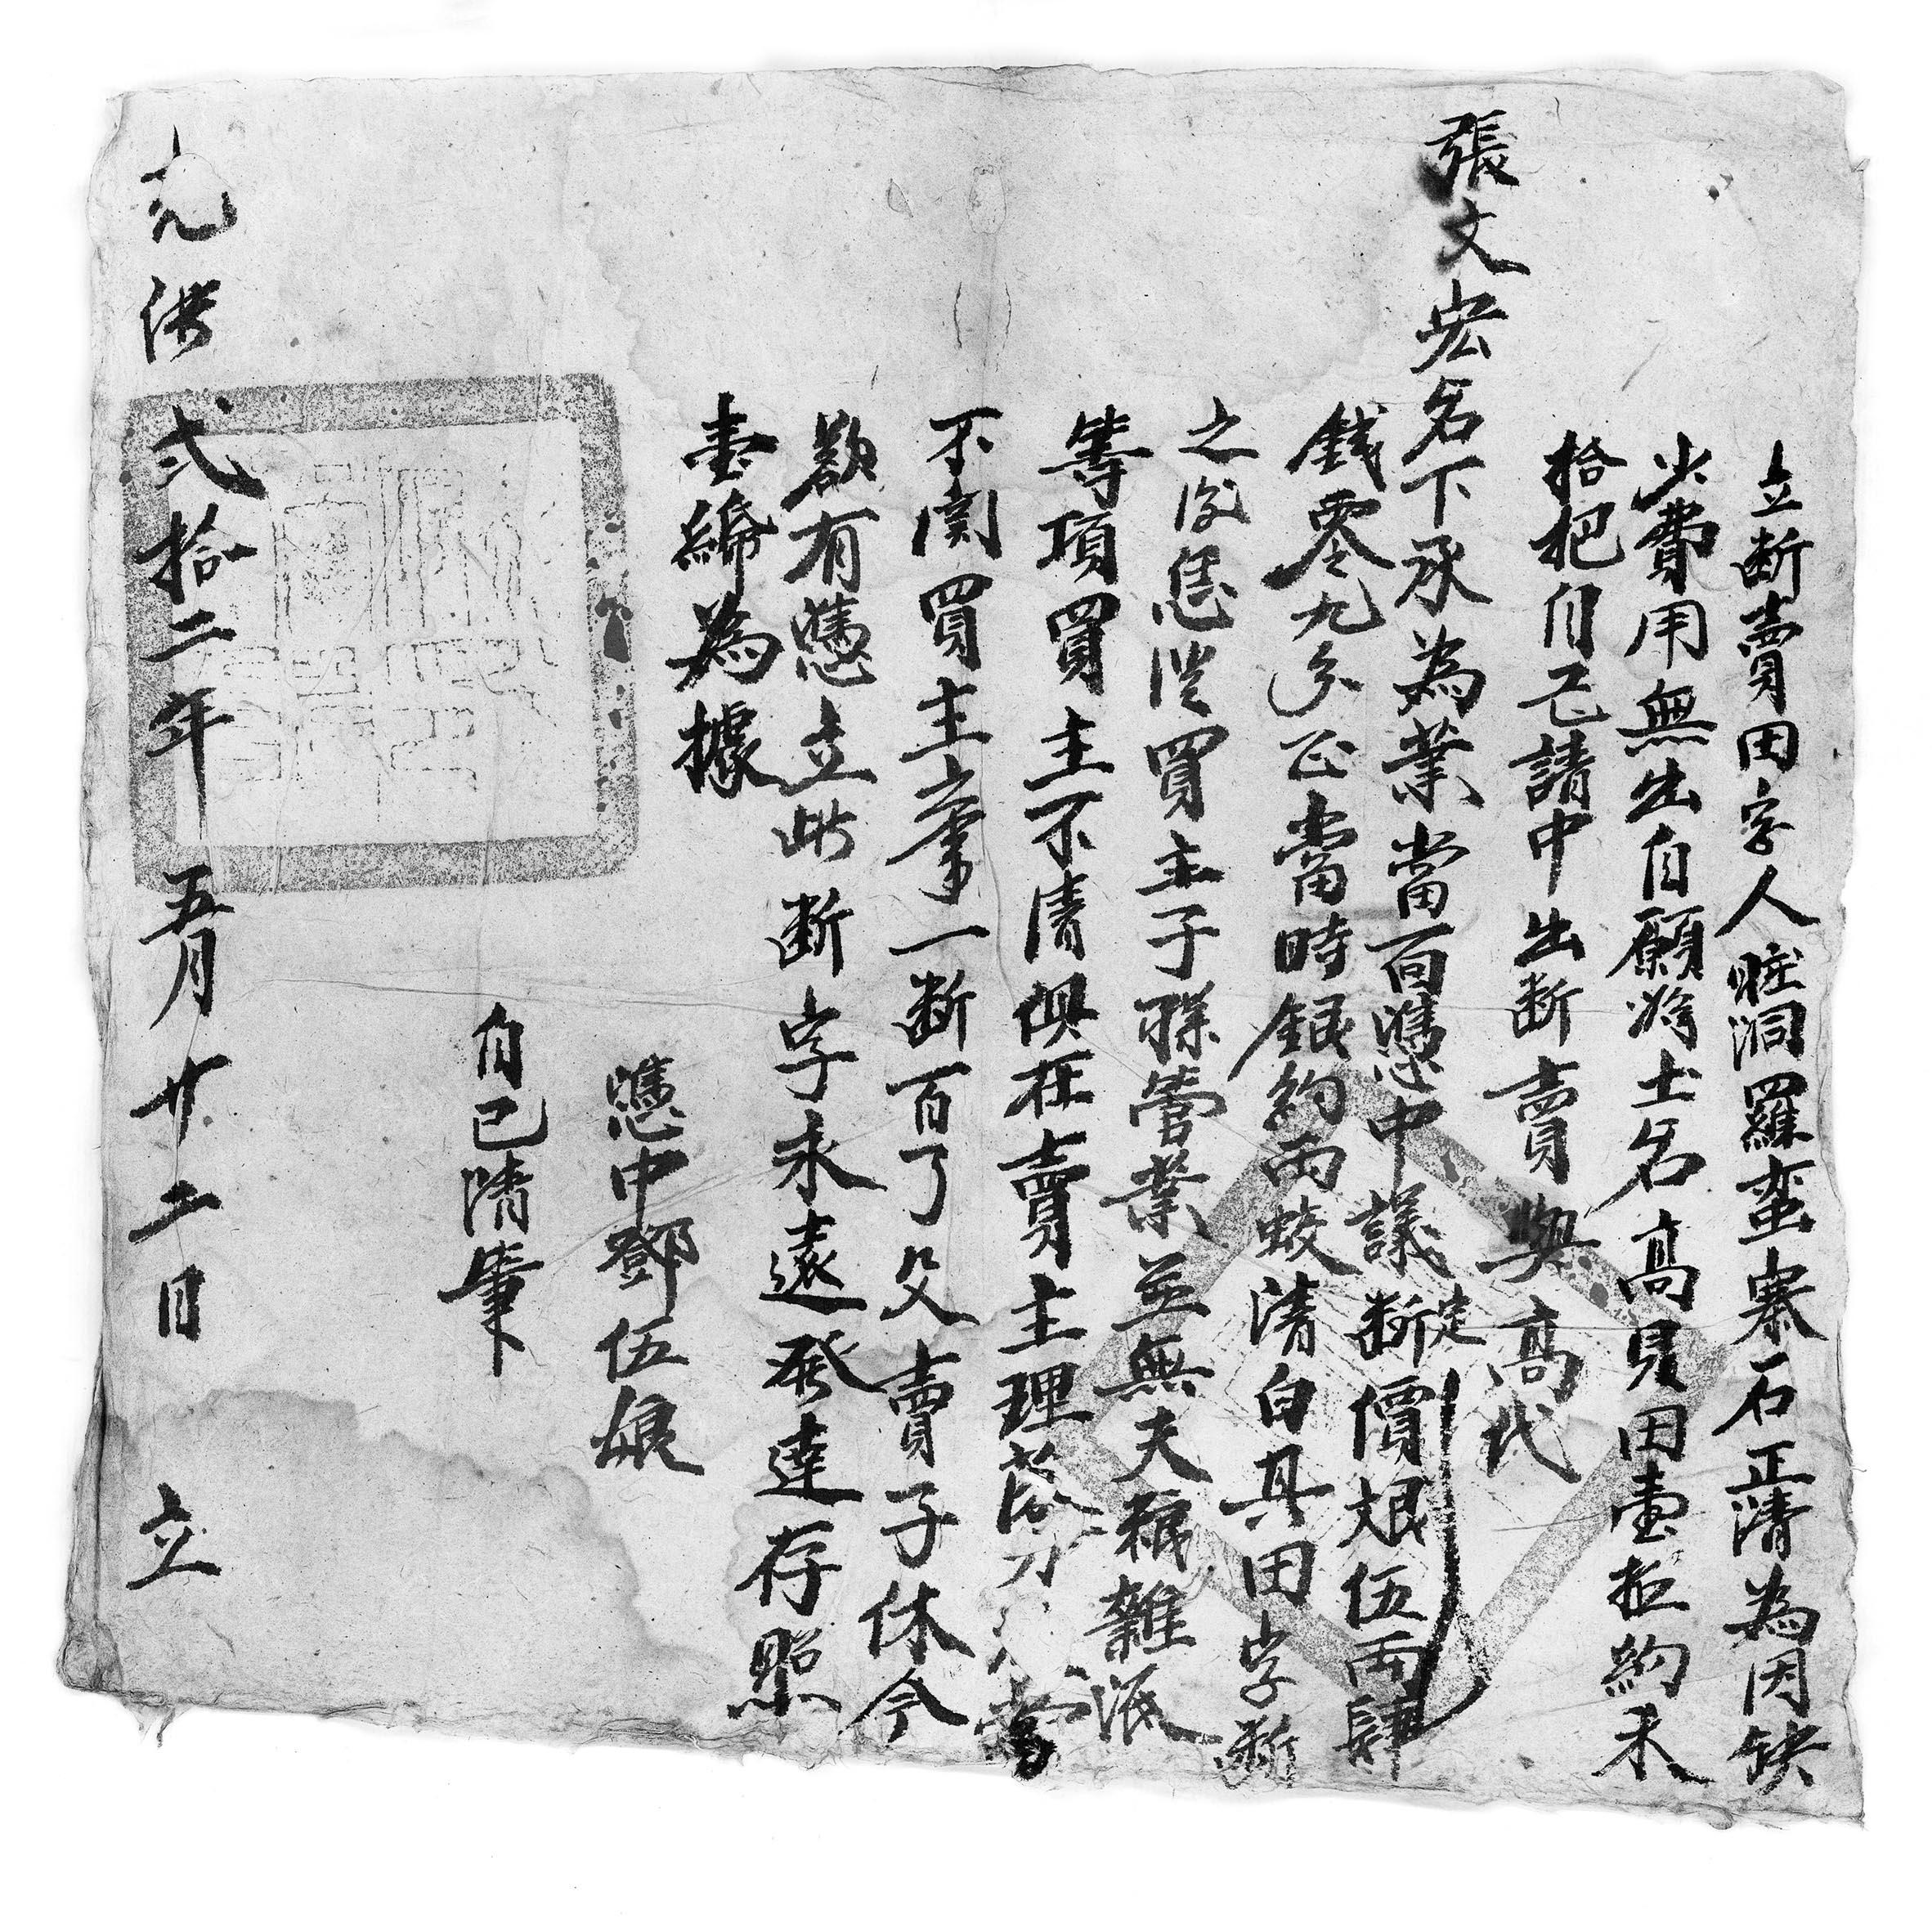 立断賣田字人旺洞羅蛮寨石正清為因缺
少費用無出自願將土名高見田壹坵約禾
拾把自己請中出断賣與高代
張文宏名下承為業當面憑中議定断價銀伍両肆
錢零九分正當時銀約両交清白其田字断
之後恁從買主子孫管業並無夫役雜派
等項買主不清俱在賣主理落 當
不関買主之事一断百了父賣子休今
欲有憑立此断字永遠發達存照
壹紙為據
憑中鄧伍娘
自己清筆
光洪弍拾二年五月廿二日立